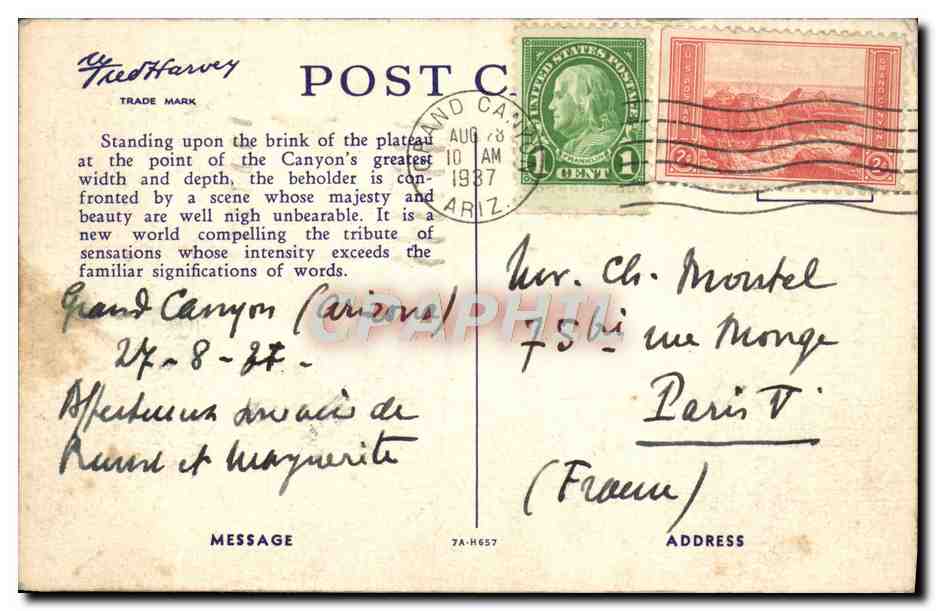 Fred Harvey
TRADE MARK
POST C
Standing upon the brink of the plateau
at the point of the Canyon's greatest
width and depth, the beholder is con-
fronted by a scene whose majesty and
beauty are well nigh unbearable. It is a
new world compelling the tribute of
sensations whose intensity exceeds the
familiar significations of words.
GRAND CANYON
AUG 28
10 AM
1937
ARIZ.
UNITED STATES POSTAGE
FRANKLIN
1 CENT 1
U.S. POSTAGE
GRAND CANYON
2¢ 2¢
Grand Canyon (Arizona)
27-8-37-
Affectueux souvenir de
et Marguerite
CPAPHIL
Mr. Ch. Montel
75 bis rue Monge
Paris V
(France)
MESSAGE
7A-H657
ADDRESS